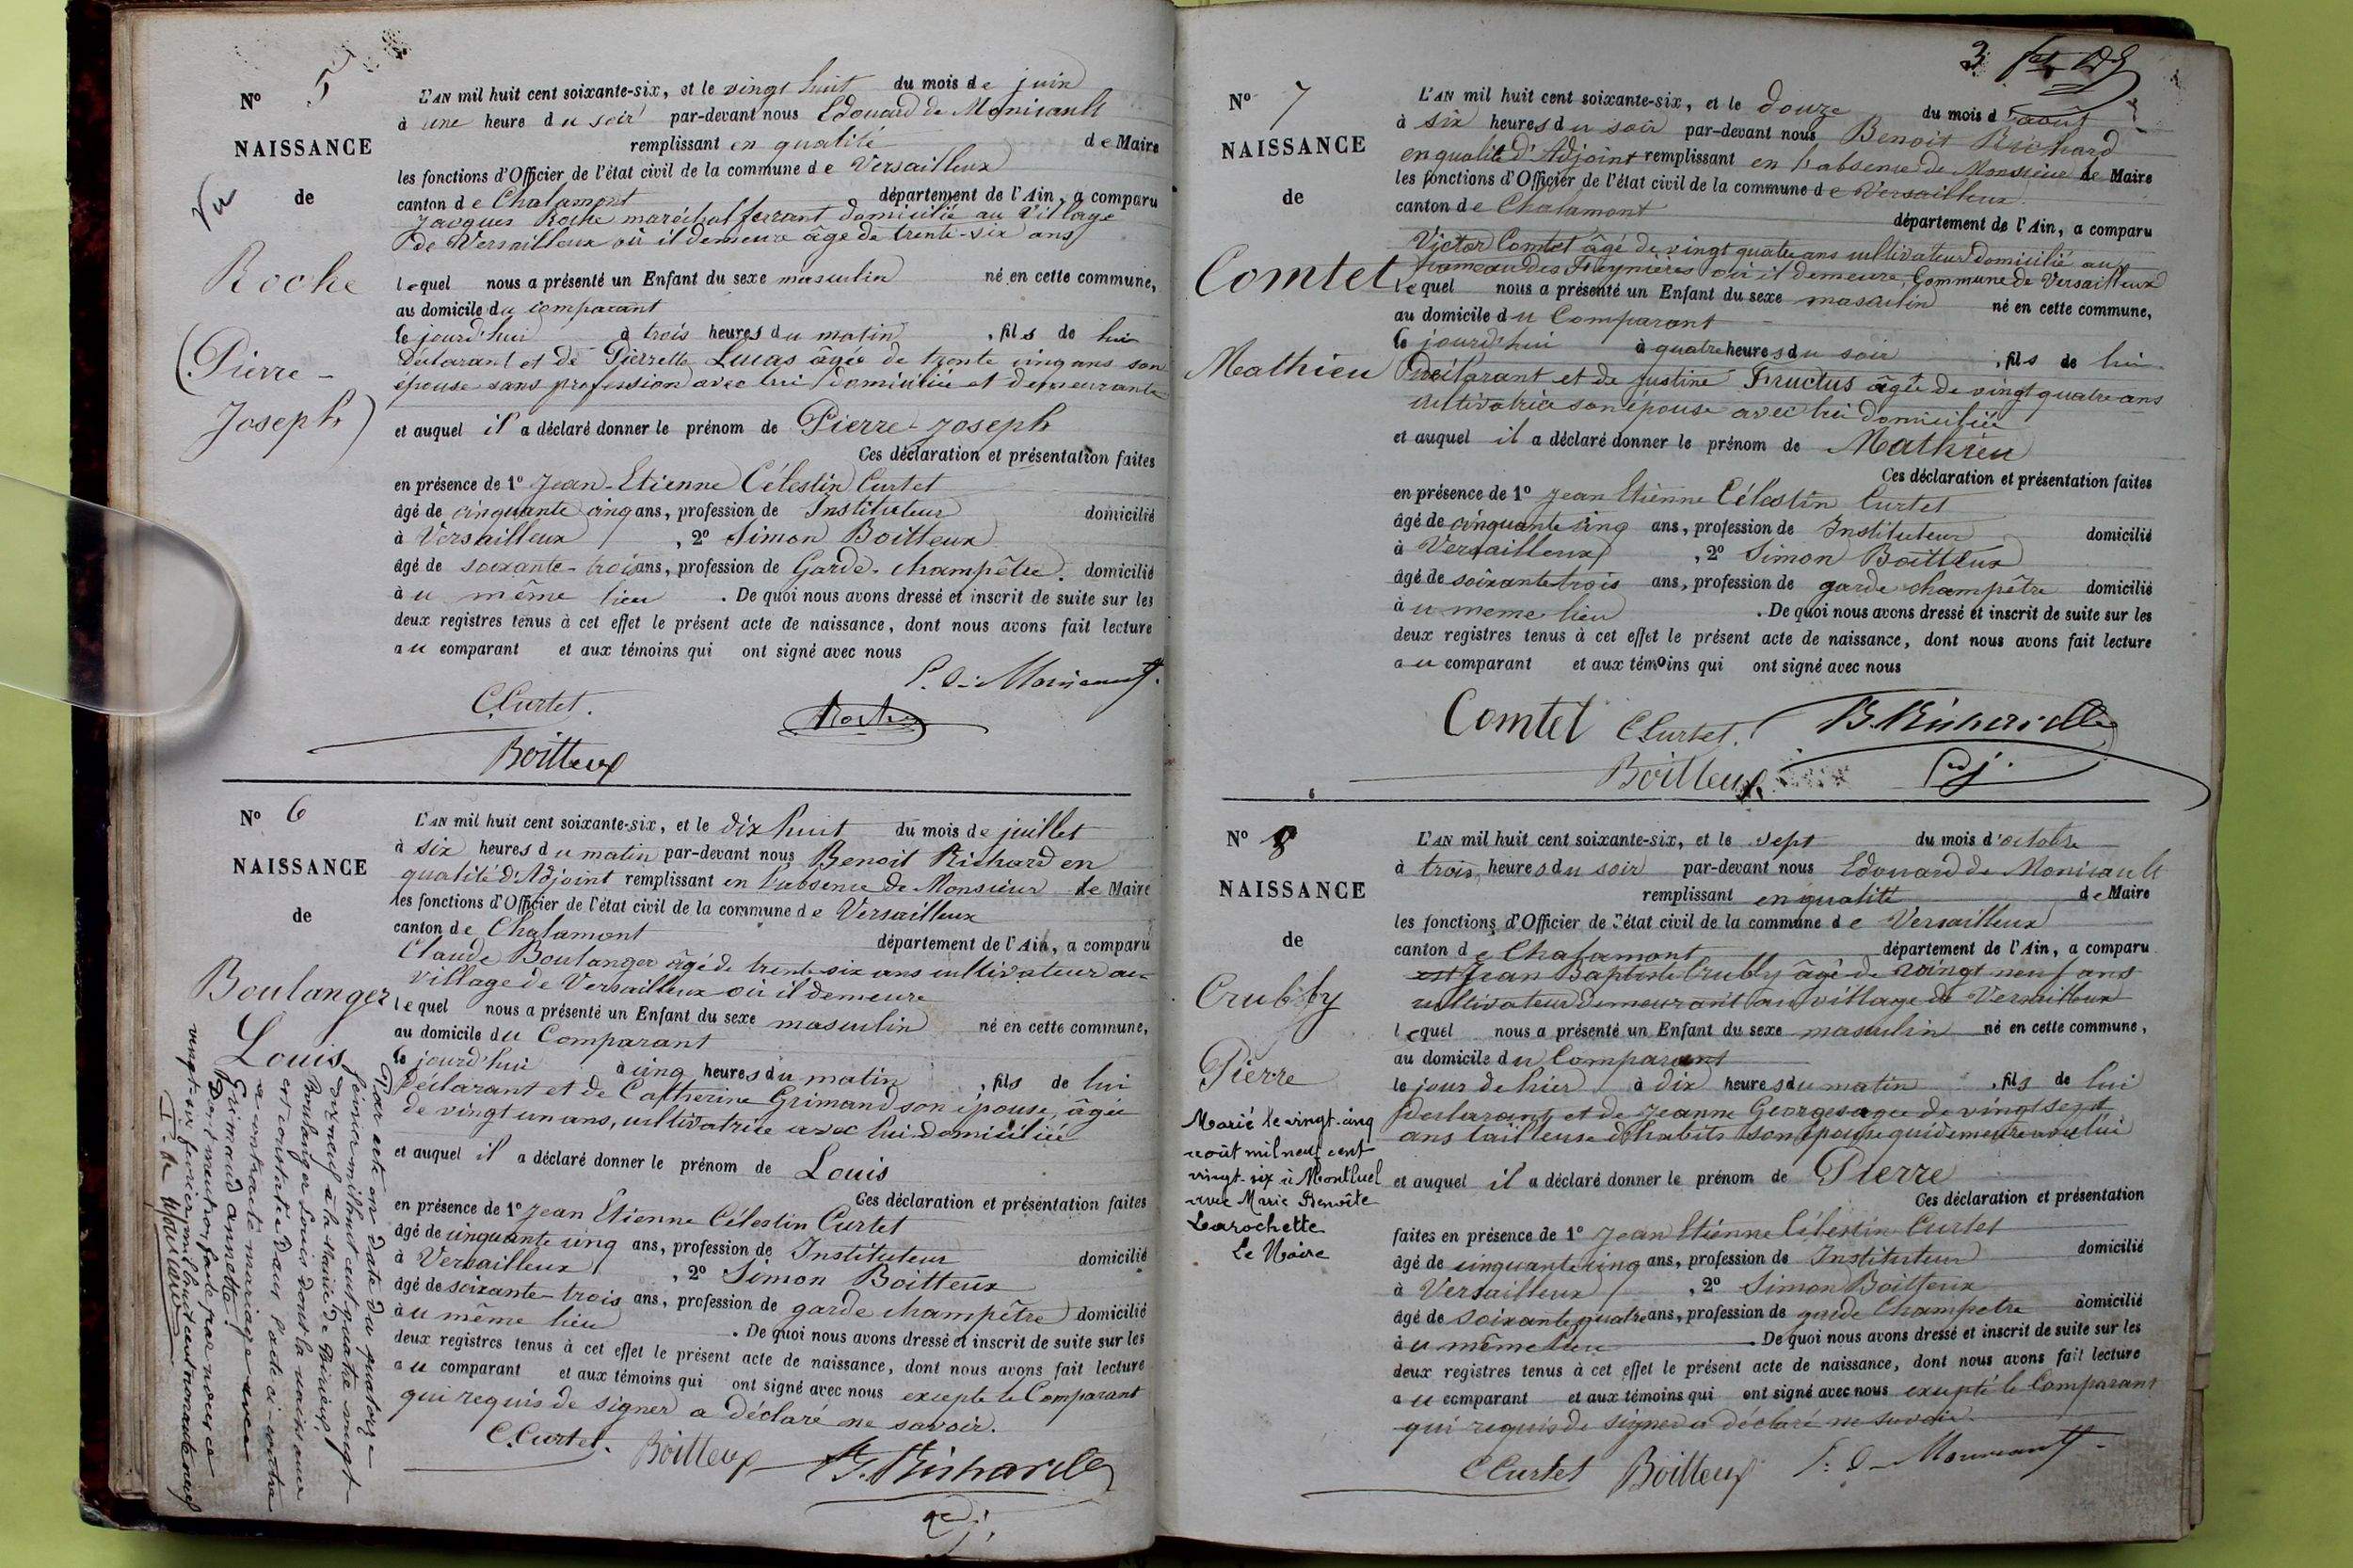 N° 5
NAISSANCE
de
Vu
Roche
(Pierre-
Joseph)
L'AN mil huit cent soixante-six, et le vingt huit du mois de juin
à une heure du soir par-devant nous Edouard de Monicault
remplissant en qualité de Maire
les fonctions d'Officier de l'état civil de la commune de Versailleux
canton de Chalamont département de l'Ain, a comparu
Jacques Roche maréchal ferrant domicilié au Village
de Versailleux où il demeure âgé de trente-six ans
lequel nous a présenté un Enfant du sexe masculin né en cette commune,
au domicile du comparant
le jourd'hui à trois heures du matin, fils de lui
déclarant et de Pierrette Lucas âgée de trente cinq ans son
épouse sans profession avec lui domiciliée et demeurante
et auquel il a déclaré donner le prénom de Pierre-Joseph
Ces déclaration et présentation faites
en présence de 1° Jean-Etienne Célestin Curtet
âgé de cinquante cinq ans, profession de Instituteur domicilié
à Versailleux, 2° Simon Boitteux
âgé de soixante-trois ans, profession de Garde-champêtre. domicilié
au même lieu. De quoi nous avons dressé et inscrit de suite sur les
deux registres tenus à cet effet le présent acte de naissance, dont nous avons fait lecture
au comparant et aux témoins qui ont signé avec nous
C. Curtet.
Roche
Boitteux
N° 6
NAISSANCE
de
Boulanger
Louis
L'AN mil huit cent soixante-six, et le dix huit du mois de juillet
à six heures du matin par-devant nous Benoit Richard en
qualité d'Adjoint remplissant en l'absence de Monsieur le Maire
les fonctions d'Officier de l'état civil de la commune de Versailleux
canton de Chalamont département de l'Ain, a comparu
Claude Boulanger âgé de trente-six ans cultivateur au
village de Versailleux où il demeure
lequel nous a présenté un Enfant du sexe masculin né en cette commune,
au domicile du Comparant
le jourd'hui à cinq heures du matin, fils de lui
Déclarant et de Catherine Grimand son épouse, âgée
de vingt un ans, cultivatrice avec lui domiciliée
et auquel il a déclaré donner le prénom de Louis
Ces déclaration et présentation faites
en présence de 1° Jean Etienne Célestin Curtet
âgé de cinquante cinq ans, profession de Instituteur domicilié
à Versailleux, 2° Simon Boitteux
âgé de soixante-trois ans, profession de garde champêtre domicilié
au même lieu. De quoi nous avons dressé et inscrit de suite sur les
deux registres tenus à cet effet le présent acte de naissance, dont nous avons fait lecture
au comparant et aux témoins qui ont signé avec nous excepté le Comparant
qui requis de signer a déclaré ne savoir.
C. Curtet. Boitteux
Par acte en date du quatorze
février mil huit cent quatre vingt-
dix neuf à la Mairie de
Boulanger Louis dont la naissance
est constatée dans l'acte ci-contre
a contracté mariage avec
Grimaud annette.
Dont mention faite par nous ce
vingt-six février mil huit cent nonante neuf
3
N° 7
NAISSANCE
de
Comtet
Mathieu
L'AN mil huit cent soixante-six, et le douze du mois d'août
à six heures du soir par-devant nous Benoit Richard
en qualité d'Adjoint remplissant en l'absence de Monsieur le Maire
les fonctions d'Officier de l'état civil de la commune de Versailleux
canton de Chalamont département de l'Ain, a comparu
Victor Comtet âgé de vingt quatre ans cultivateur domicilié au
hameau des où il demeure, Commune de Versailleux
lequel nous a présenté un Enfant du sexe masculin né en cette commune,
au domicile du Comparant
le jourd'hui à quatre heures du soir, fils de lui
Déclarant et de Justine Fructus âgée de vingt quatre ans
cultivatrice son épouse avec lui domiciliée
et auquel il a déclaré donner le prénom de Mathieu
Ces déclaration et présentation faites
en présence de 1° Jean Etienne Célestin Curtet
âgé de cinquante cinq ans, profession de Instituteur domicilié
à Versailleux, 2° Simon Boitteux
âgé de soixante trois ans, profession de garde champêtre domicilié
au meme lieu. De quoi nous avons dressé et inscrit de suite sur les
deux registres tenus à cet effet le présent acte de naissance, dont nous avons fait lecture
au comparant et aux témoins qui ont signé avec nous
Comtet C Curtet.
Boitteux
adj.
N° 8
NAISSANCE
de
Crubly
Pierre
Marié le vingt-cinq
août mil neuf cent
vingt-six à Montluel
avec Marie Benoîte
Larochette
Le Maire
L'AN mil huit cent soixante-six, et le sept du mois d'octobre
à trois heures du soir par-devant nous Edouard de Monicault
remplissant en qualité de Maire
les fonctions d'Officier de l'état civil de la commune de Versailleux
canton de Chalamont département de l'Ain, a comparu
Jean Baptiste Crubly âgé de vingt neuf ans
cultivateur demeurant au village de Versailleux
lequel nous a présenté un Enfant du sexe masculin né en cette commune,
au domicile du Comparant
le jour de hier à dix heures du matin, fils de lui
Déclarant et de Jeanne Georges agée de vingt sept
ans tailleuse d'habits son épouse qui demeure avec lui
et auquel il a déclaré donner le prénom de Pierre
Ces déclaration et présentation
faites en présence de 1° Jean Etienne Célestin Curtet
âgé de cinquante cinq ans, profession de Instituteur domicilié
à Versailleux, 2° Simon Boitteux
âgé de soixante quatre ans, profession de garde Champetre domicilié
au même lieu. De quoi nous avons dressé et inscrit de suite sur les
deux registres tenus à cet effet le présent acte de naissance, dont nous avons fait lecture
au comparant et aux témoins qui ont signé avec nous excepté le Comparant
qui requis de signer a déclaré ne savoir.
C Curtet Boitteux